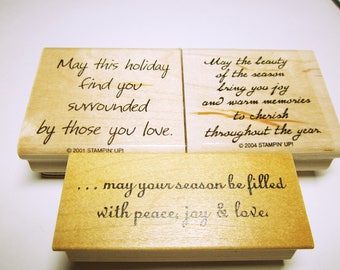 May this holiday
find you
surrounded
by those you love.
© 2001 STAMPIN' UP!
May the beauty
of the season
bring you joy
and warm memories
to cherish
throughout the year.
© 2004 STAMPIN' UP!
... may your season be filled
with peace, joy & love.